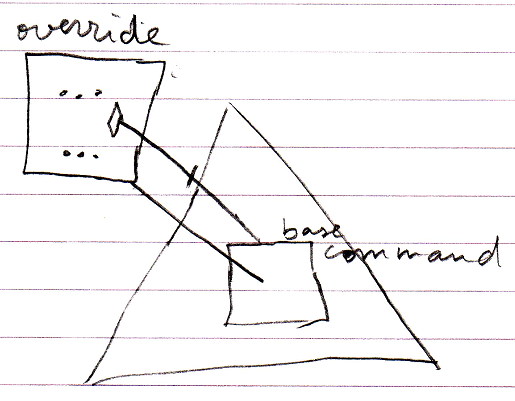 override
...
...
base
command